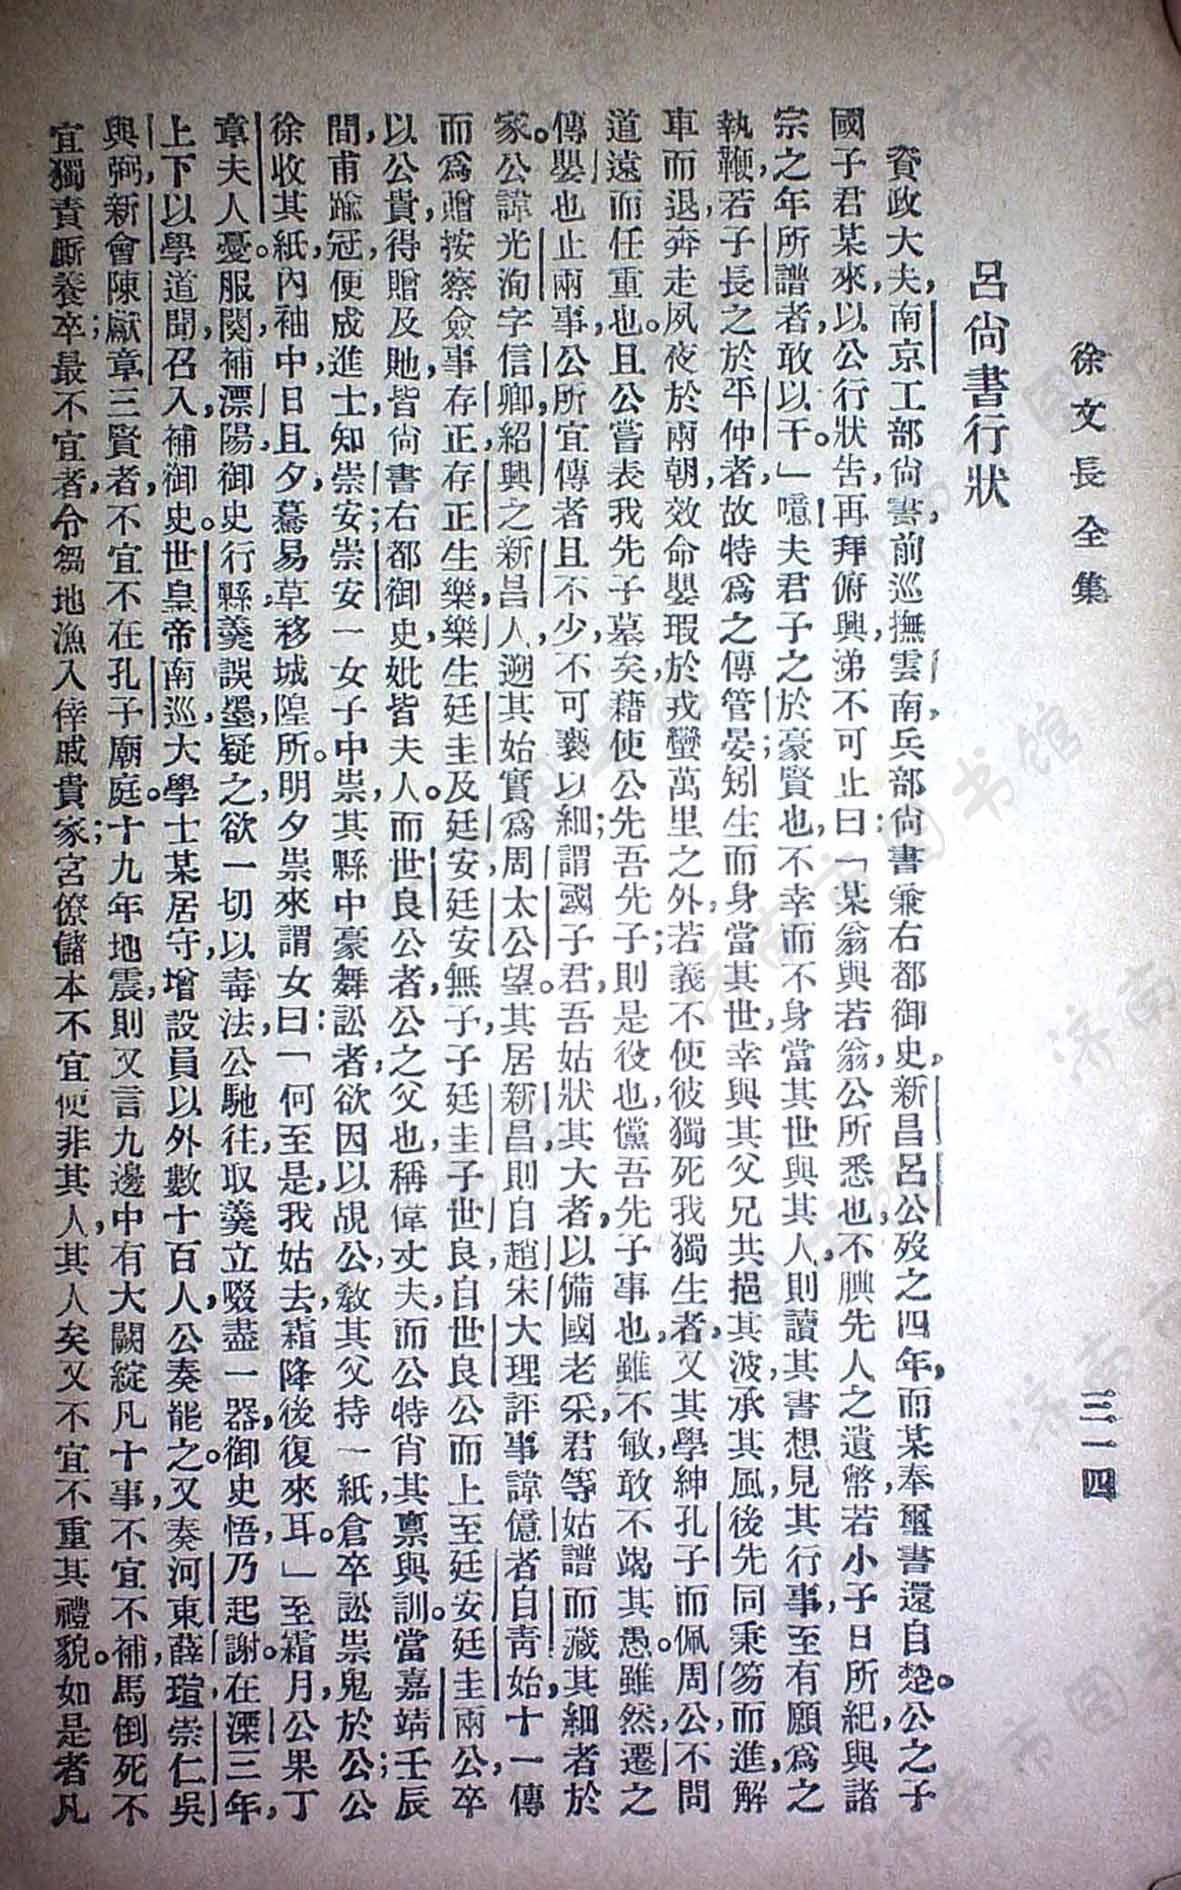 徐文長全集
三一四
呂尚書行狀
資政大夫，南京工部尚書，前巡撫雲南，兵部尚書兼右都御史，新昌呂公，歿之四年，而某奉璽書還自楚。公之子
國子君某來，以公行狀告，再拜俯興，涕不可止曰：「某翁與若翁，公所悉也，不腆先人之遺幣，若小子日所紀，與諸
宗之年所譜者，敢以干。」噫夫君子之於豪賢也，不幸而不身當其世，與其人，則讀其書，想見其行事，至有願爲之
執鞭，若子長之於平仲者，故特爲之傳管晏；矧生而身當其世，幸與其父兄共挹其波，承其風，後先同秉笏而進，解
車而退，奔走夙夜於兩朝，效命嬰瑕於戎蠻萬里之外，若義不使彼獨死我獨生者，又其學紳孔子而佩周公，不問
道遠而任重也。且公嘗表我先子墓矣，藉使公先吾先子，則是役也，儻吾先子事也，雖不敏，敢不竭其愚。雖然，遷之
傳嬰也，止兩事，公所宜傳者且不少，不可褻以細；謂國子君，吾姑狀其大者，以備國老采，君等姑譜而藏其細者於
家。公諱光洵，字信卿，紹興之新昌人，遡其始，實爲周太公望。其居新昌，則自趙宋大理評事諱億者，自青始，十一傳
而爲贈按察僉事存正，存正生樂，樂生廷圭及廷安，廷安無子，子廷圭子世良，自世良公而上至廷安廷圭兩公，卒
以公貴，得贈及貤，皆尚書右都御史，妣皆夫人。而世良公者，公之父也，稱偉丈夫，而公特肖其稟與訓。當嘉靖壬辰
間，甫踰冠，便成進士，知崇安；崇安一女子中祟，其縣中豪舞訟者，欲因以覘公，敎其父持一紙，倉卒訟祟鬼於公；公
徐收其紙，內袖中，日且夕，驀易草移城隍所。明夕祟來謂女曰：「何至是，我姑去，霜降後復來耳。」至霜月，公果丁
章夫人憂。服闋，補溧陽，御史行縣，羹誤墨，疑之，欲一切以毒法，公馳往，取羹立啜盡一器，御史悟，乃起謝。在溧三年，
上下以學道聞，召入，補御史。世皇帝南巡，大學士某居守，增設員以外數十百人，公奏能之。又奏河東薛瑄，崇仁吳
與弼，新會陳獻章三賢者，不宜不在孔子廟庭。十九年地震，則又言九邊中有大闕綻凡十事，不宜不補，馬倒死不
宜獨責厮養卒；最不宜者，令芻地漁入倖戚貴家；宮僚儲本不宜使非其人，其人矣，又不宜不重其禮貌。如是者凡